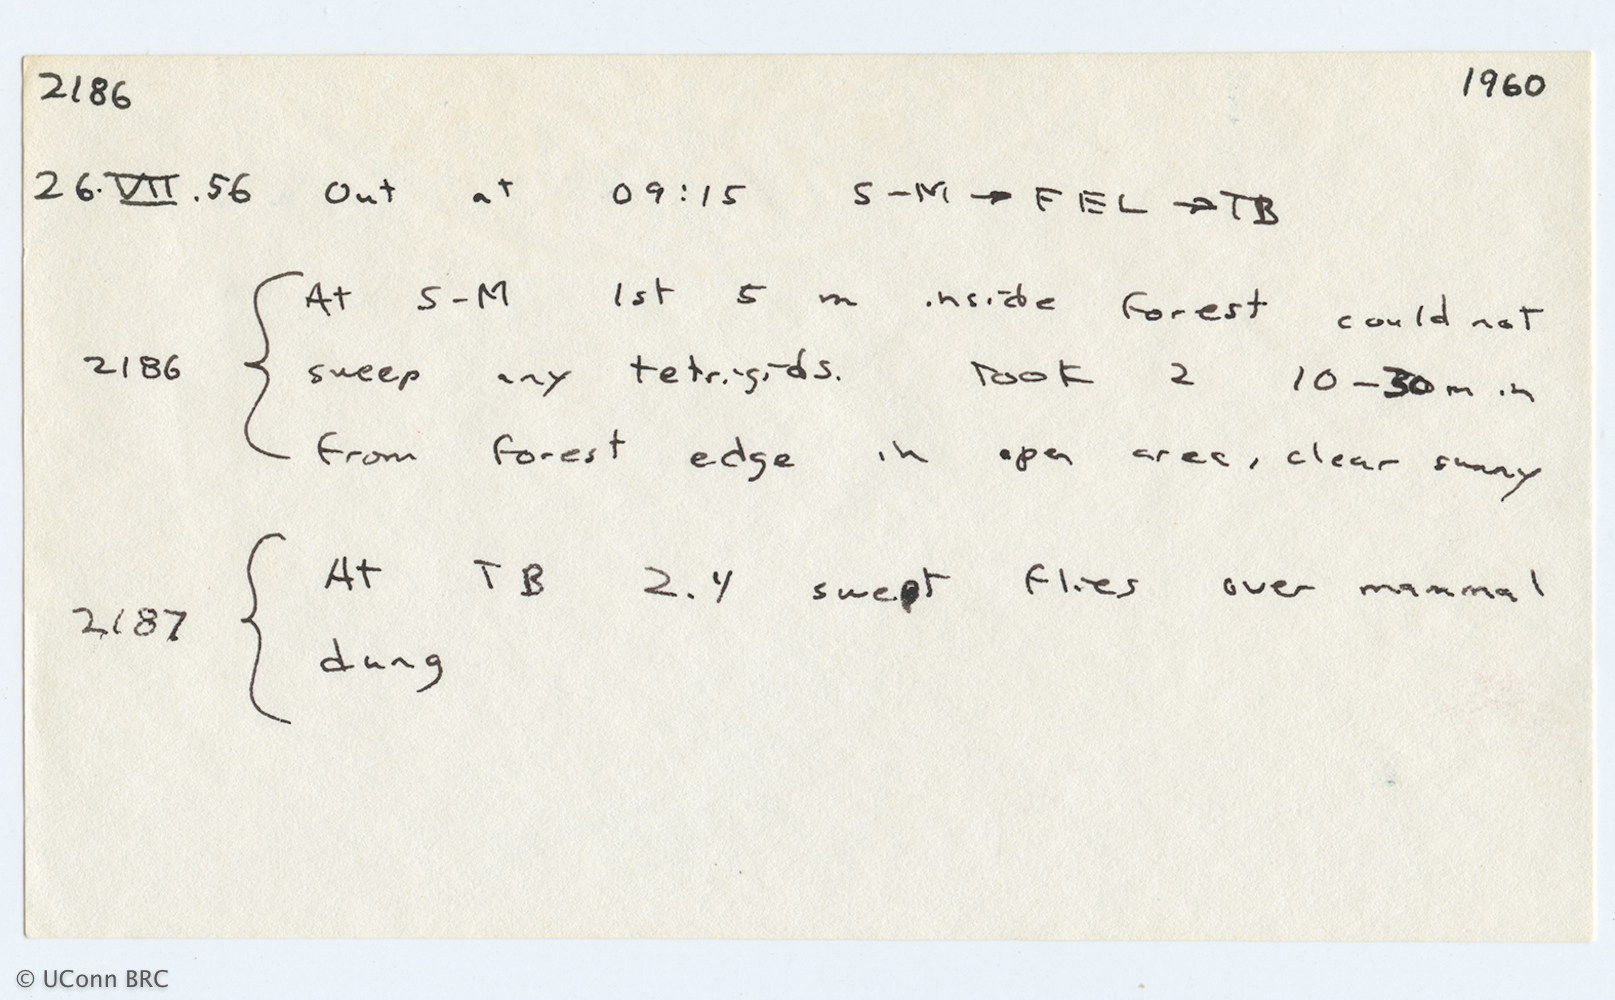 2186 1960
26.VII.56 Out at 09:15 S-M → FEL → TB
At S-M 1st 5 m inside forest could not
2186 sweep any tetrigids. Took 2 10-30m in
from forest edge in open area, clear sunny
At TB 2.4 swept flies over mammal
2187
dung
© UConn BRC